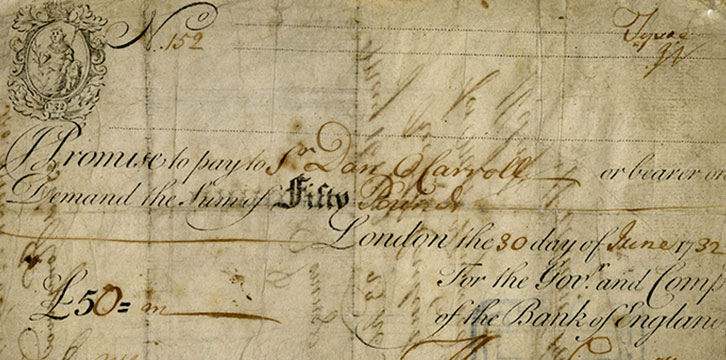 No. 152
I Promise to pay to Sr. Dan O Carroll or bearer on
Demand the Sum of Fifty Pounds
London the 30 day of June 1732
For the Govr. and Comp
£50=
of the Bank of England